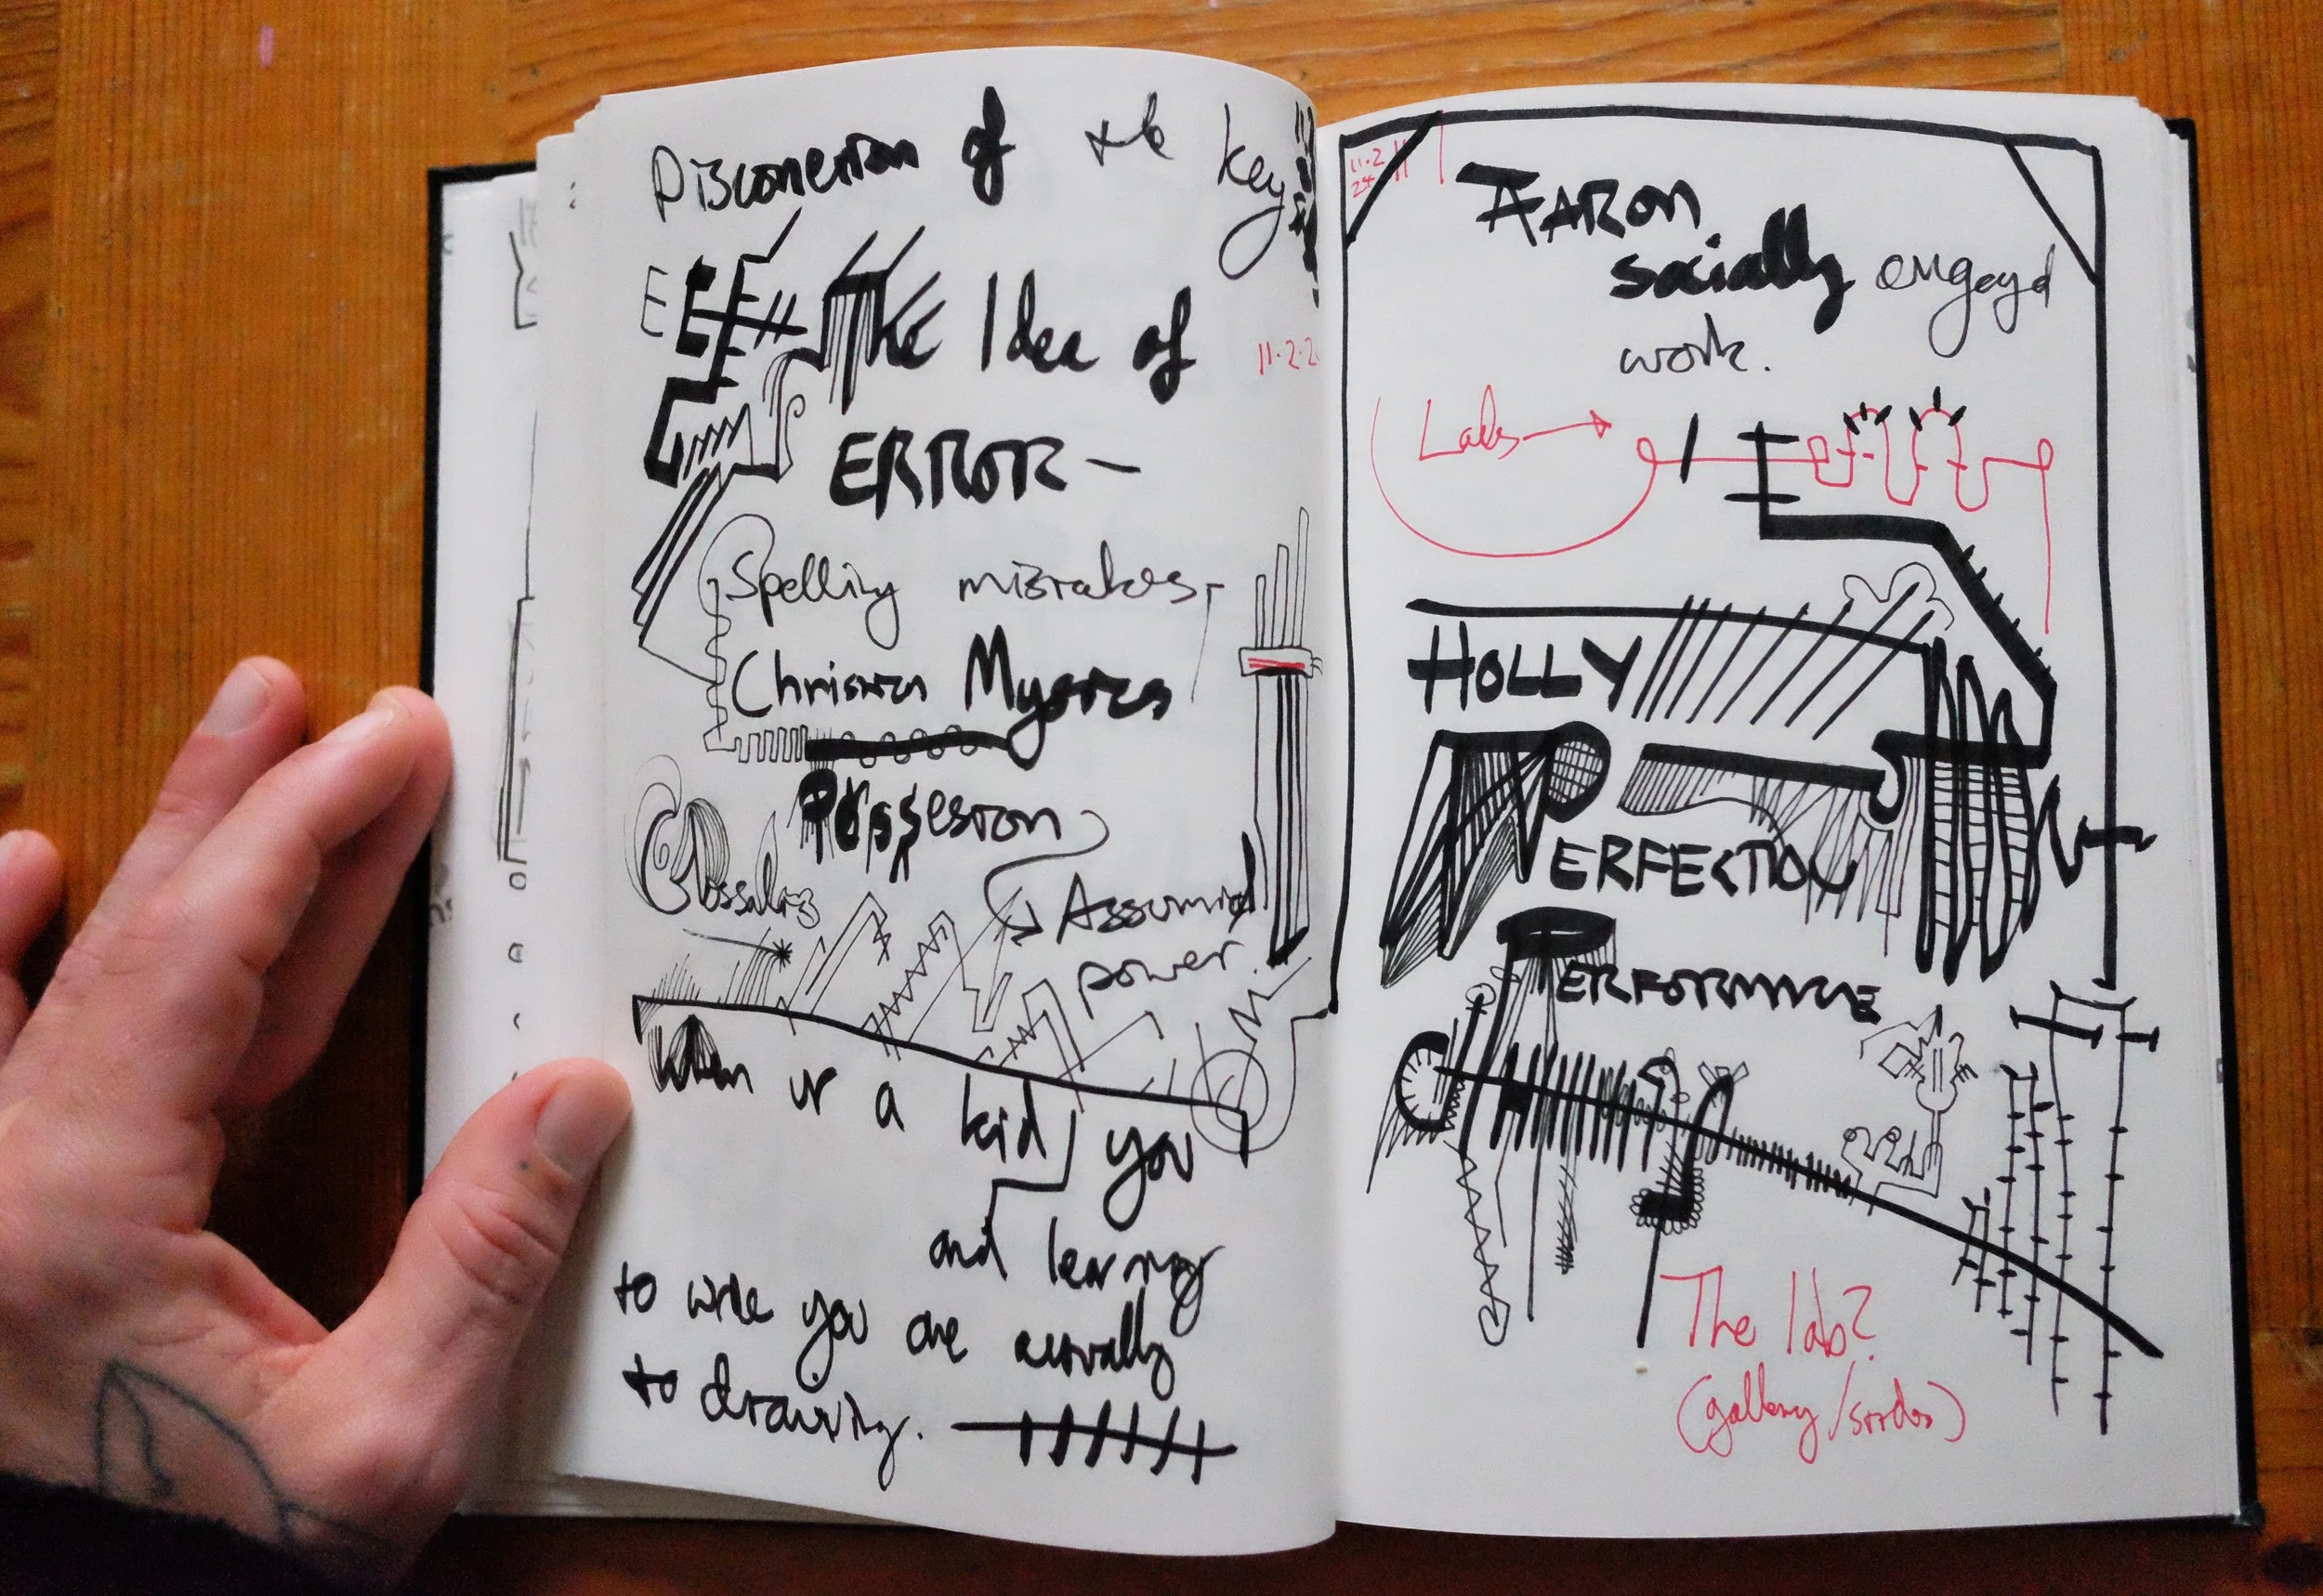 Disconection of the key
The Idea of
11.2.2
ERROR –
Spelling mistakes,
Christian Mystics
Possesion
Glossalas
Assumed
power.
When ur a kid you
and learning
to write you are actually
to drawing.
11.2
24
AARON
socially engayd
work.
Labs
HOLLY
PERFECTION
PERFORMANCE
The lab?
(gallery/studio)